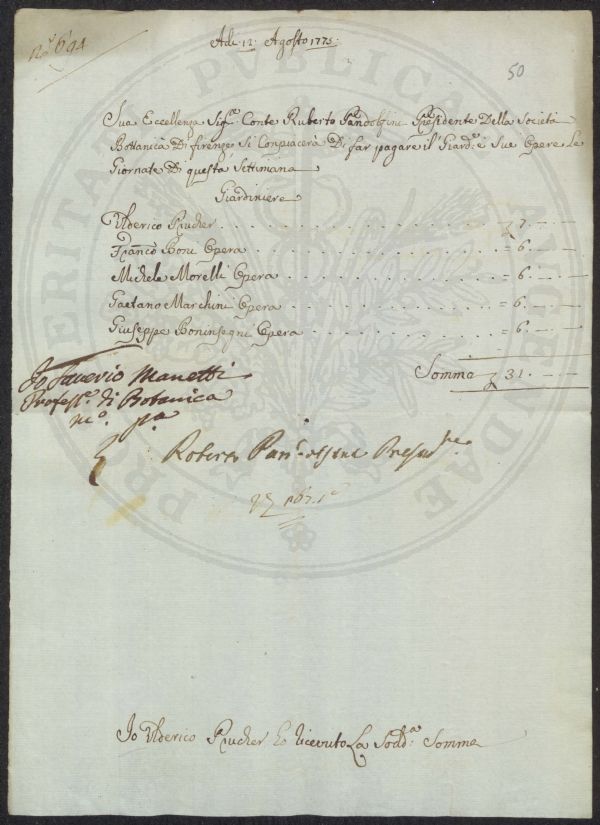 No. 694
Adi 12 Agosto 1775:
50
Sua Eccellenza Sigr. Conte Ruberto Pandolfini Presidente Della Società
Bottanica Di firenze, Si Conpiacerà Di far pagare il Giard:e e Sue Opere Le
Giornate Di questa Settimana
Giardiniere
Ulderico Prucher . . . . . . . . . . . . £ 7. — —
Francò Boni Opera . . . . . . . . . . . . = 6. — —
Michele Morelli Opera . . . . . . . . . . . . = 6. — —
Gaetano Marchini Opera . . . . . . . . . . . . = 6. — —
Giuseppe Boninsegni Opera . . . . . . . . . . . . = 6. — —
Somma £ 31. — —
Io Saverio Manetti
Profess.o di Botanica
m.o p.a
Roberto Pandolfini Presid.te
Io Ulderico Prucher ho ricevuto La Sodd:a Somma
PROSPERITATI PUBLICAE AUGENDAE